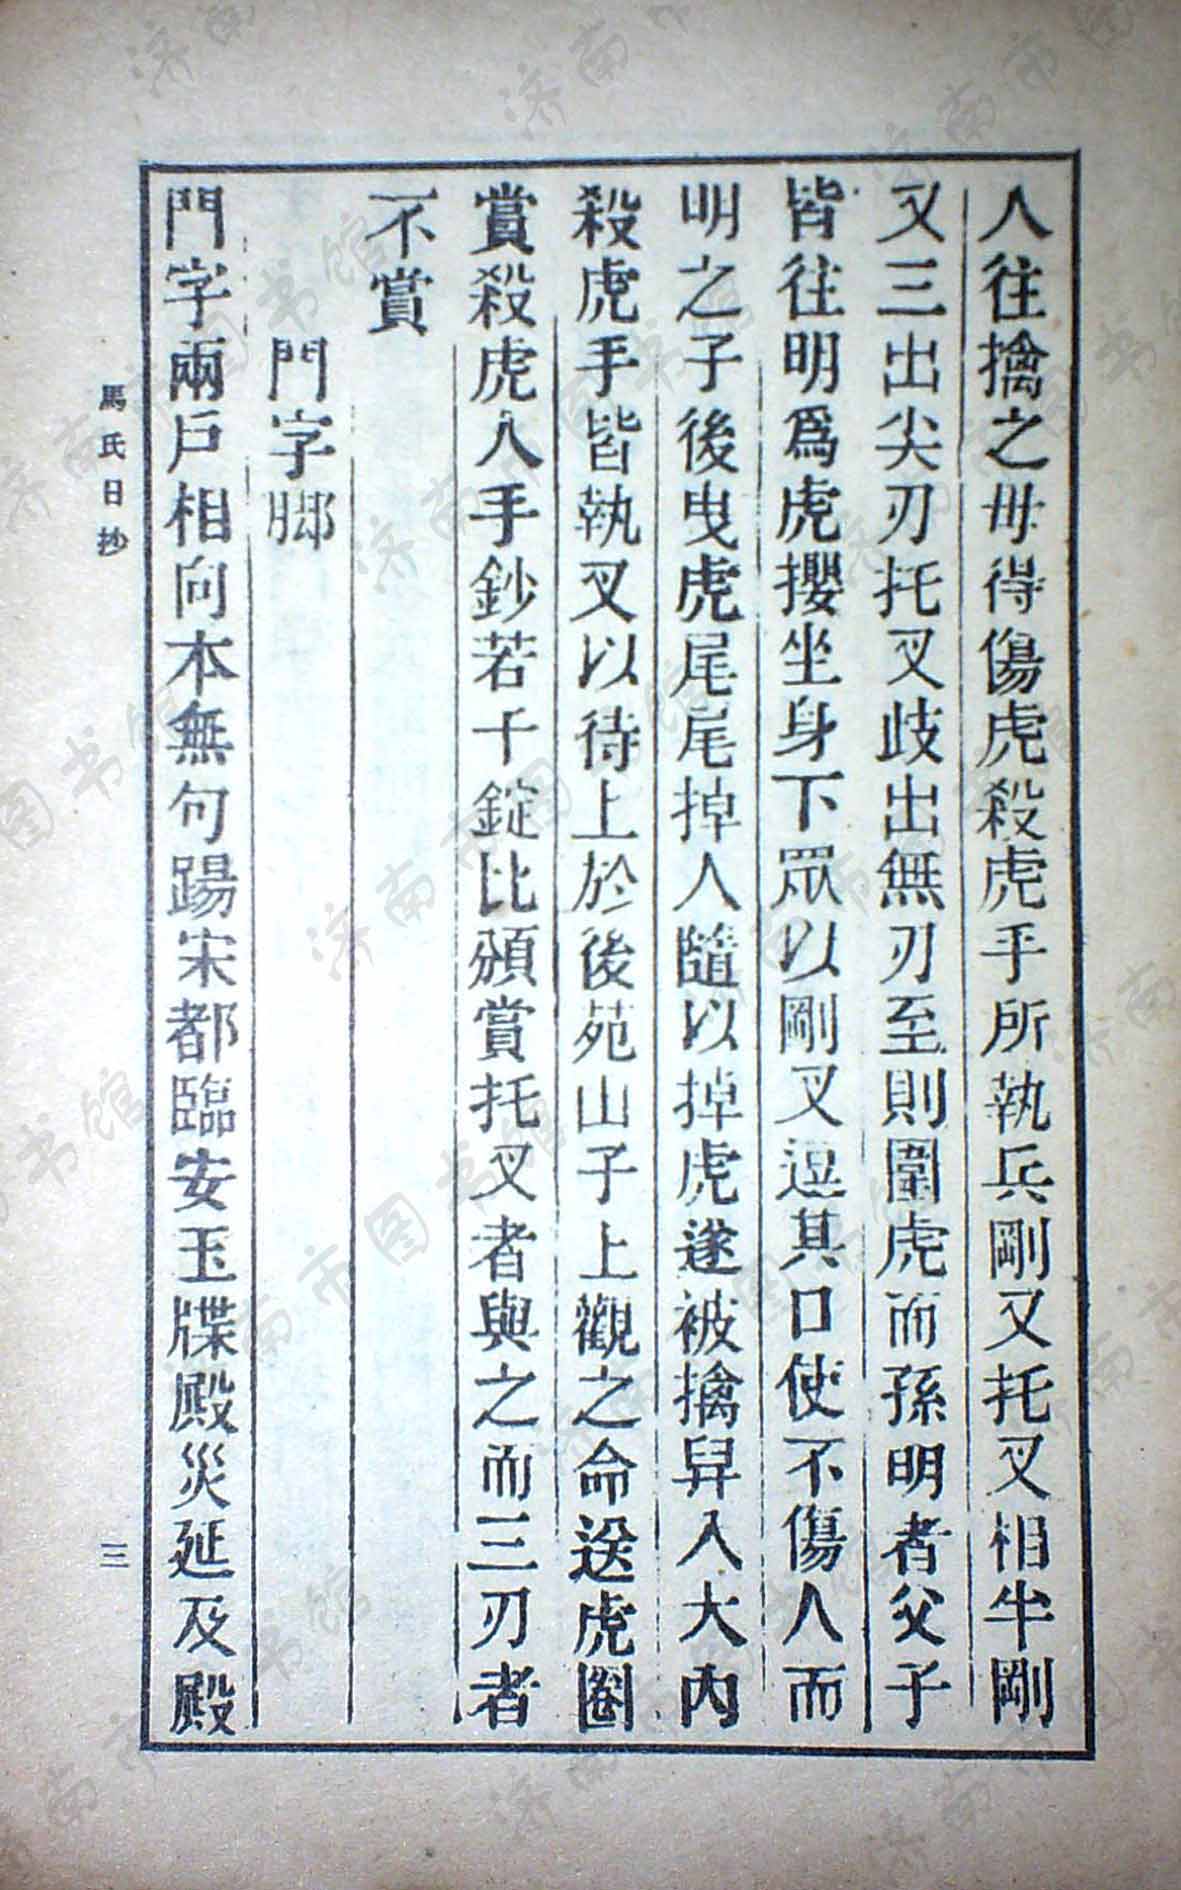 人往擒之毋得傷虎殺虎手所執兵剛叉托叉相半剛
叉三出尖刃托叉歧出無刃至則圍虎而孫明者父子
皆往明爲虎攖坐身下眾以剛叉逗其口使不傷人而
明之子後曳虎尾尾掉人隨以掉虎遂被擒舁入大內
殺虎手皆執叉以待上於後苑山子上觀之命送虎圈
賞殺虎人手鈔若干錠比頒賞托叉者與之而三刃者
不賞
門字脚
門字兩戶相向本無句踢宋都臨安玉牒殿災延及殿
馬氏日抄
三
济南市图书馆